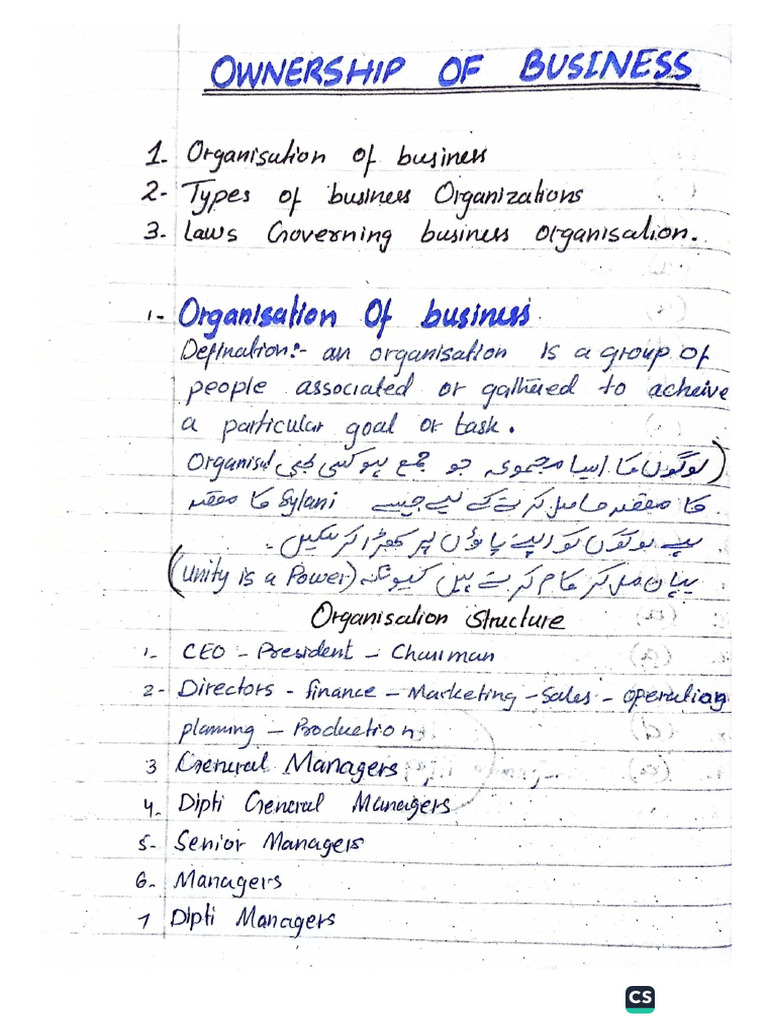 OWNERSHIP OF BUSINESS
1. Organisation of business
2- Types of business Organizations
3. Laws Governing business organisation.
1- Organisation Of business
Defination:- an organisation is a group of
people associated or gathered to acheive
a particular goal or task.
(لوگوں کا ایسا مجموعہ جو جمع ہو کسی بھی
کا مقصد حاصل کرنے کے لیے جیسے Sylani کا مقصد
ہے لوگوں کو اپنے پاؤں پر کھڑا کر سکیں۔
یہاں مل کر کام کرتے ہیں کیونکہ (Unity is a Power)
Organisation Structure
1- CEO - President - Chairman
2- Directors - finance - Marketing - Sales - operation
planning - Production
3 General Managers
4. Dipti General Managers
5- Senior Managers
6- Managers
7 Dipti Managers
CS